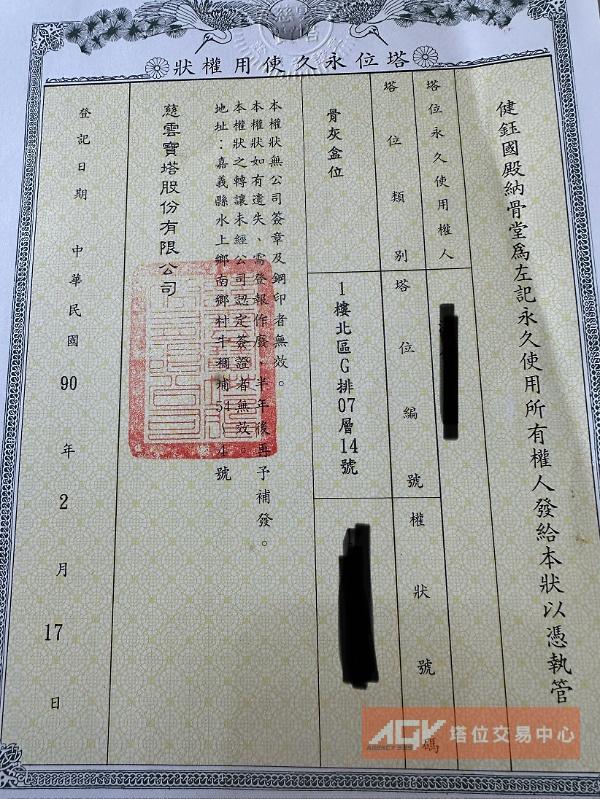 塔位永久使用權狀
健鈺國殿納骨堂為左記永久使用所有權人發給本狀以憑執管
塔位永久使用權人
塔位類別
塔位編號
權狀號碼
骨灰盒位
1樓北區G排07層14號
本權狀無公司簽章及鋼印者無效。
本權狀如有遺失、需登報作廢,半年後再予補發。
本權狀之轉讓未經公司認定簽證者無效。
地址:嘉義縣水上鄉南鄉村牛稠埔54 4號
慈雲寶塔股份有限公司
登記日期 中華民國90年2月17日
AGV 塔位交易中心